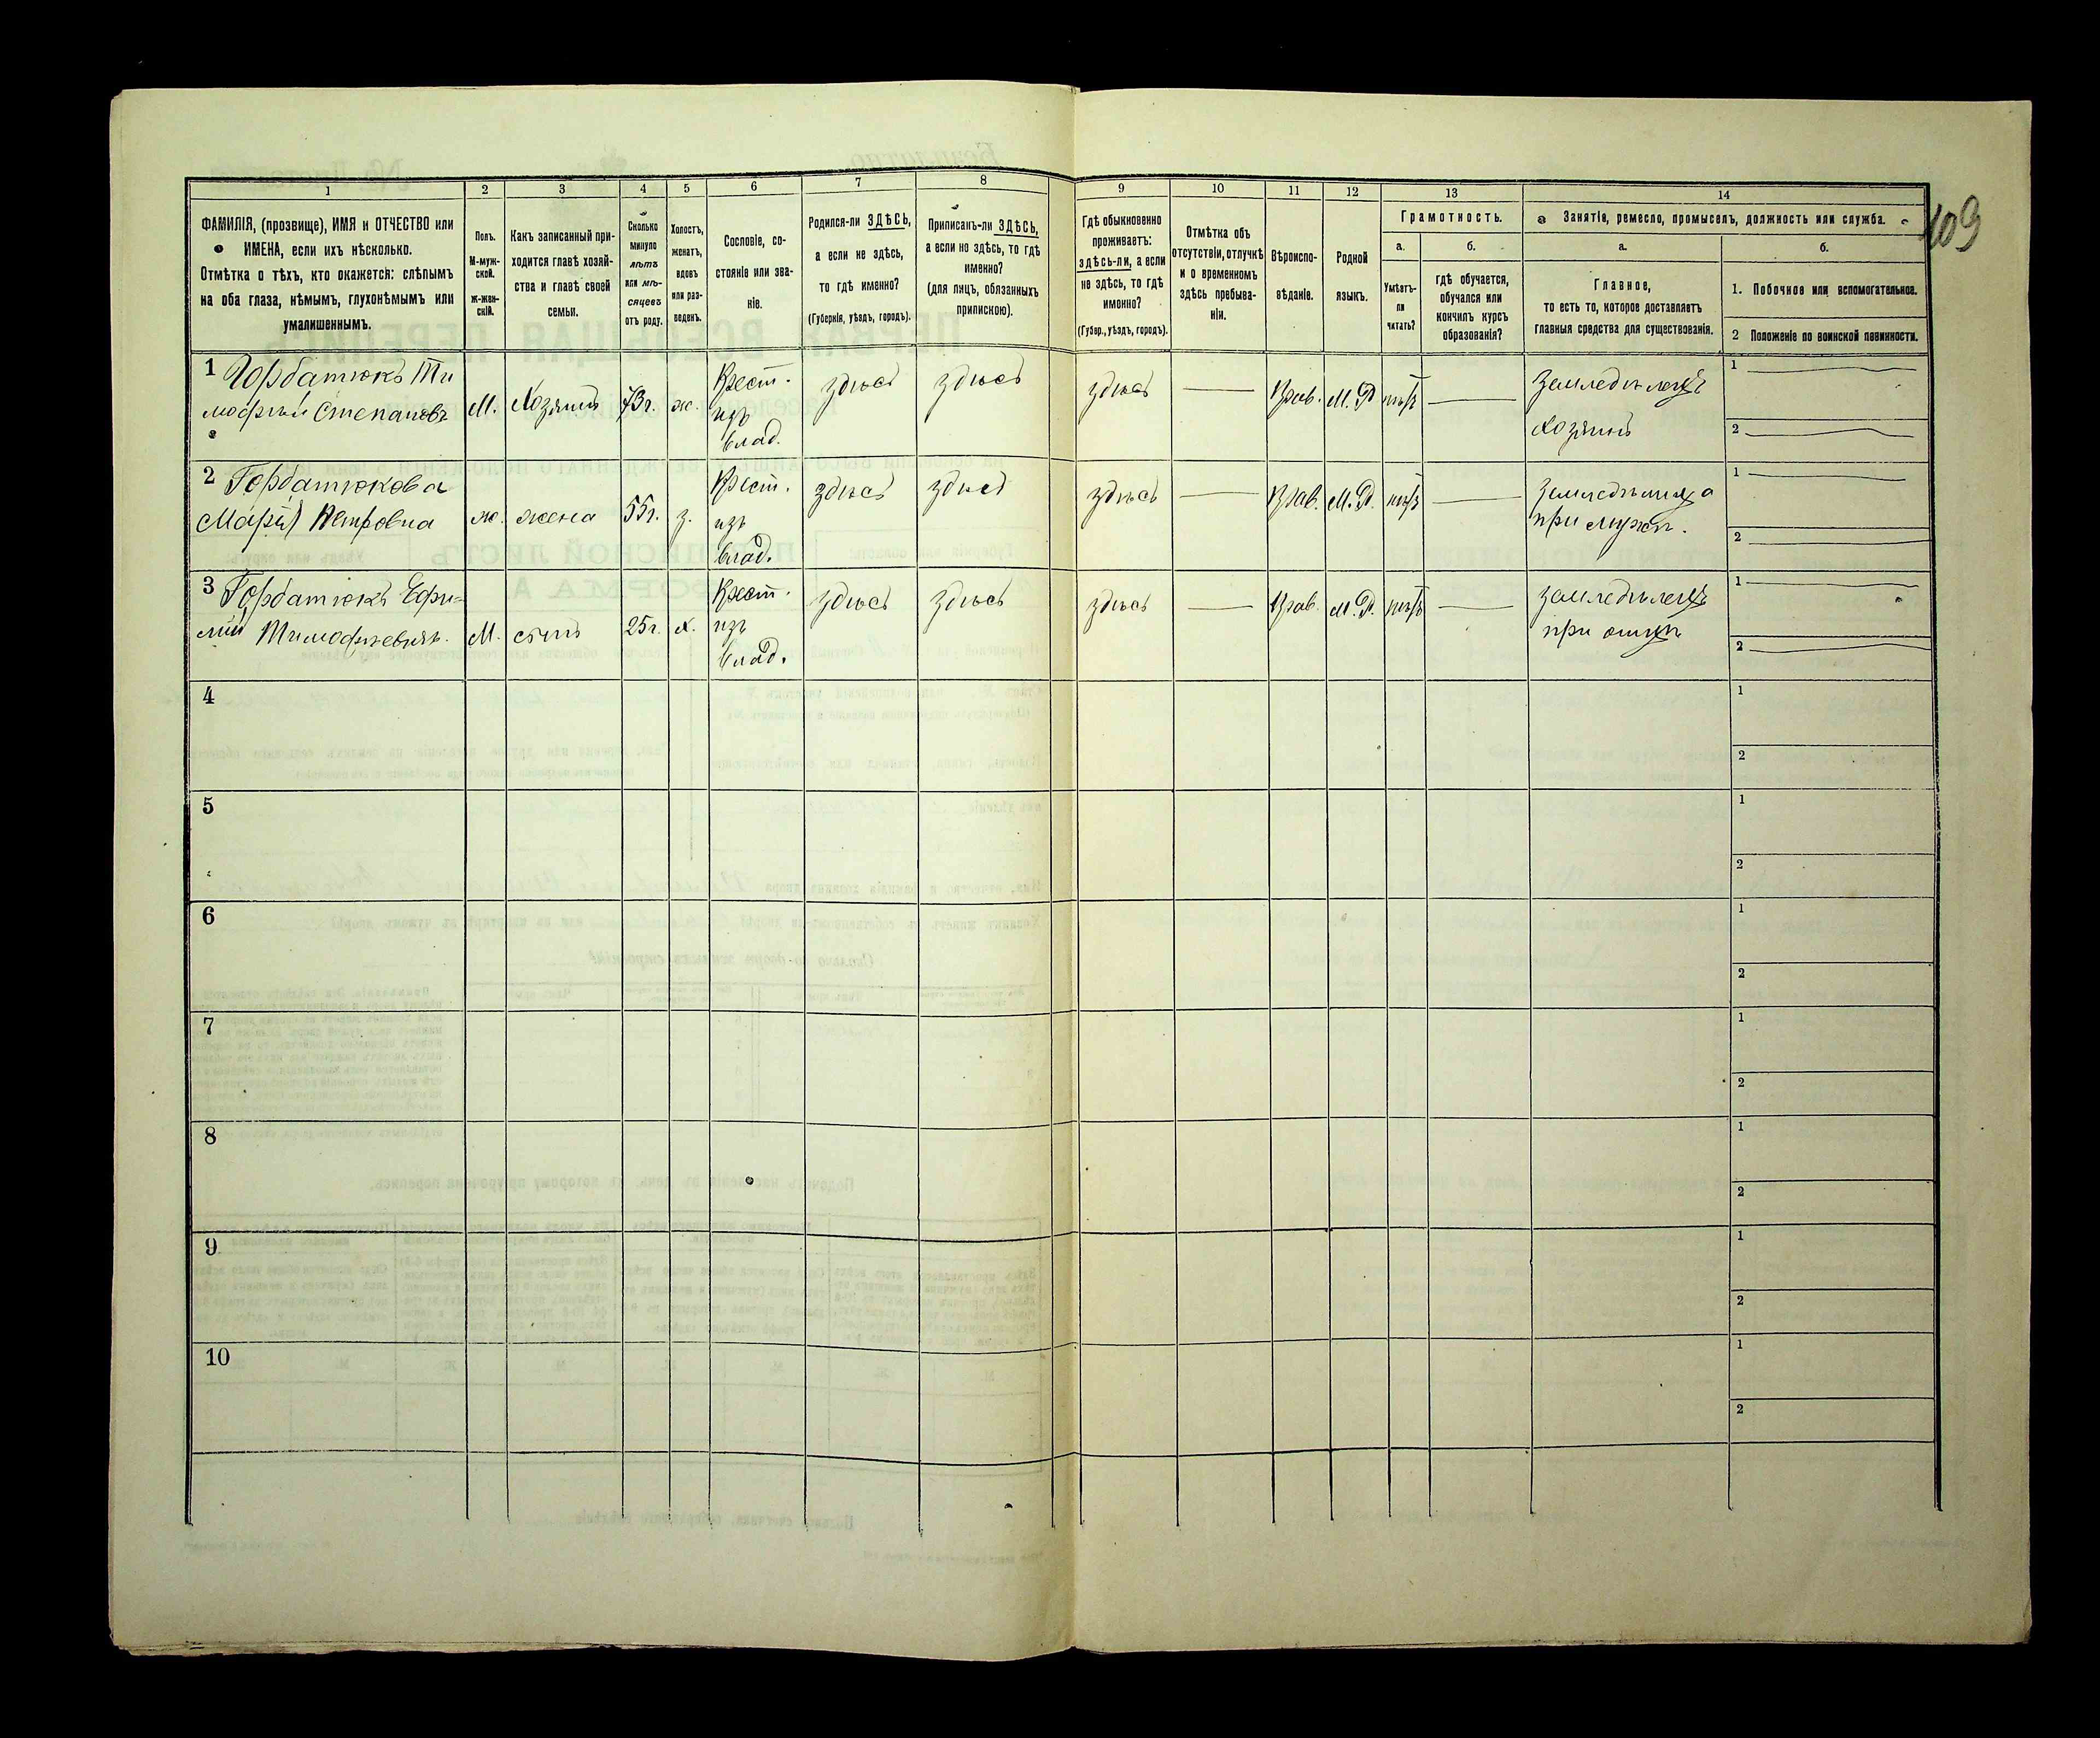 109
1 2 3 4 5 6 7 8 9 10 11 12 13 14
ФАМИЛІЯ, (прозвище), ИМЯ и ОТЧЕСТВО или
ИМЕНА, если ихъ нѣсколько.
Отмѣтка о тѣхъ, кто окажется: слѣпымъ
на оба глаза, нѣмымъ, глухонѣмымъ или
умалишеннымъ.
Полъ.
М-муж-
ской.
Ж-жен-
скій.
Какъ записанный при-
ходится главѣ хозяй-
ства и главѣ своей
семьи.
Сколько
минуло
лѣтъ
или мѣ-
сяцевъ
отъ роду.
Холостъ,
женатъ,
вдовъ
или раз-
веденъ.
Сословіе, со-
стояніе или зва-
ніе.
Родился-ли ЗДѢСЬ,
а если не здѣсь,
то гдѣ именно?
(Губернія, уѣздъ, городъ).
Приписанъ-ли ЗДѢСЬ,
а если не здѣсь, то гдѣ
именно?
(для лицъ, обязанныхъ
припискою).
Гдѣ обыкновенно
проживаетъ:
здѣсь-ли, а если
не здѣсь, то гдѣ
именно?
(Губер., уѣздъ, городъ).
Отмѣтка объ
отсутствіи, отлучкѣ
и о временномъ
здѣсь пребыва-
ніи.
Вѣроиспо-
вѣданіе.
Родной
языкъ.
Грамотность.
а.
Умѣетъ-
ли
читать?
б.
гдѣ обучается,
обучался или
кончилъ курсъ
образованія?
Занятіе, ремесло, промыселъ, должность или служба.
а.
Главное,
то есть то, которое доставляетъ
главныя средства для существованія.
б.
1. Побочное или вспомогательное.
2 Положеніе по воинской повинности.
1 Горбатюкъ Ти
мофѣй Степановъ
М. Хозяинъ 73г. ж.
Крест.
изъ
влад.
здѣсь здѣсь здѣсь — Прав. М. Р. нѣтъ —
Земледѣлецъ
хозяинъ
1
2
2 Горбатюкова
Марія Петровна
ж. жена 55г. з.
Крест.
изъ
влад.
здѣсь здѣсь здѣсь — Прав. М. Р. нѣтъ —
при мужѣ.
1
2
3 Горбатюкъ Ефи-
мій Тимофѣевичъ.
М. сынъ 25г. х.
Крест.
изъ
влад.
здѣсь здѣсь здѣсь — Прав. М. Р. нѣтъ —
Земледѣлецъ
при отцѣ
1
2
4
1
2
5
1
2
6
1
2
7
1
2
8
1
2
9
1
2
10
1
2